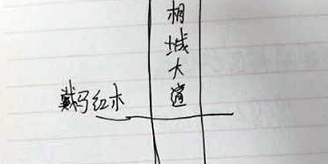 相城大道
戴马红木